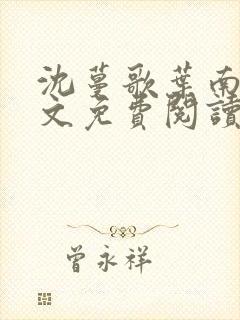 沈蔓歌葉南
文免費閱讀
曾永祥